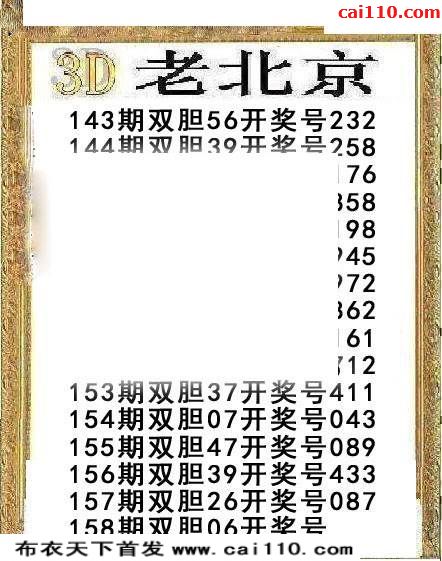 cai110.com
3D 老北京
143期双胆56开奖号232
144期双胆39开奖号258
176
858
198
945
972
362
161
712
153期双胆37开奖号411
154期双胆07开奖号043
155期双胆47开奖号089
156期双胆39开奖号433
157期双胆26开奖号087
158期双胆06开奖号
布衣天下首发 www.cai110.com